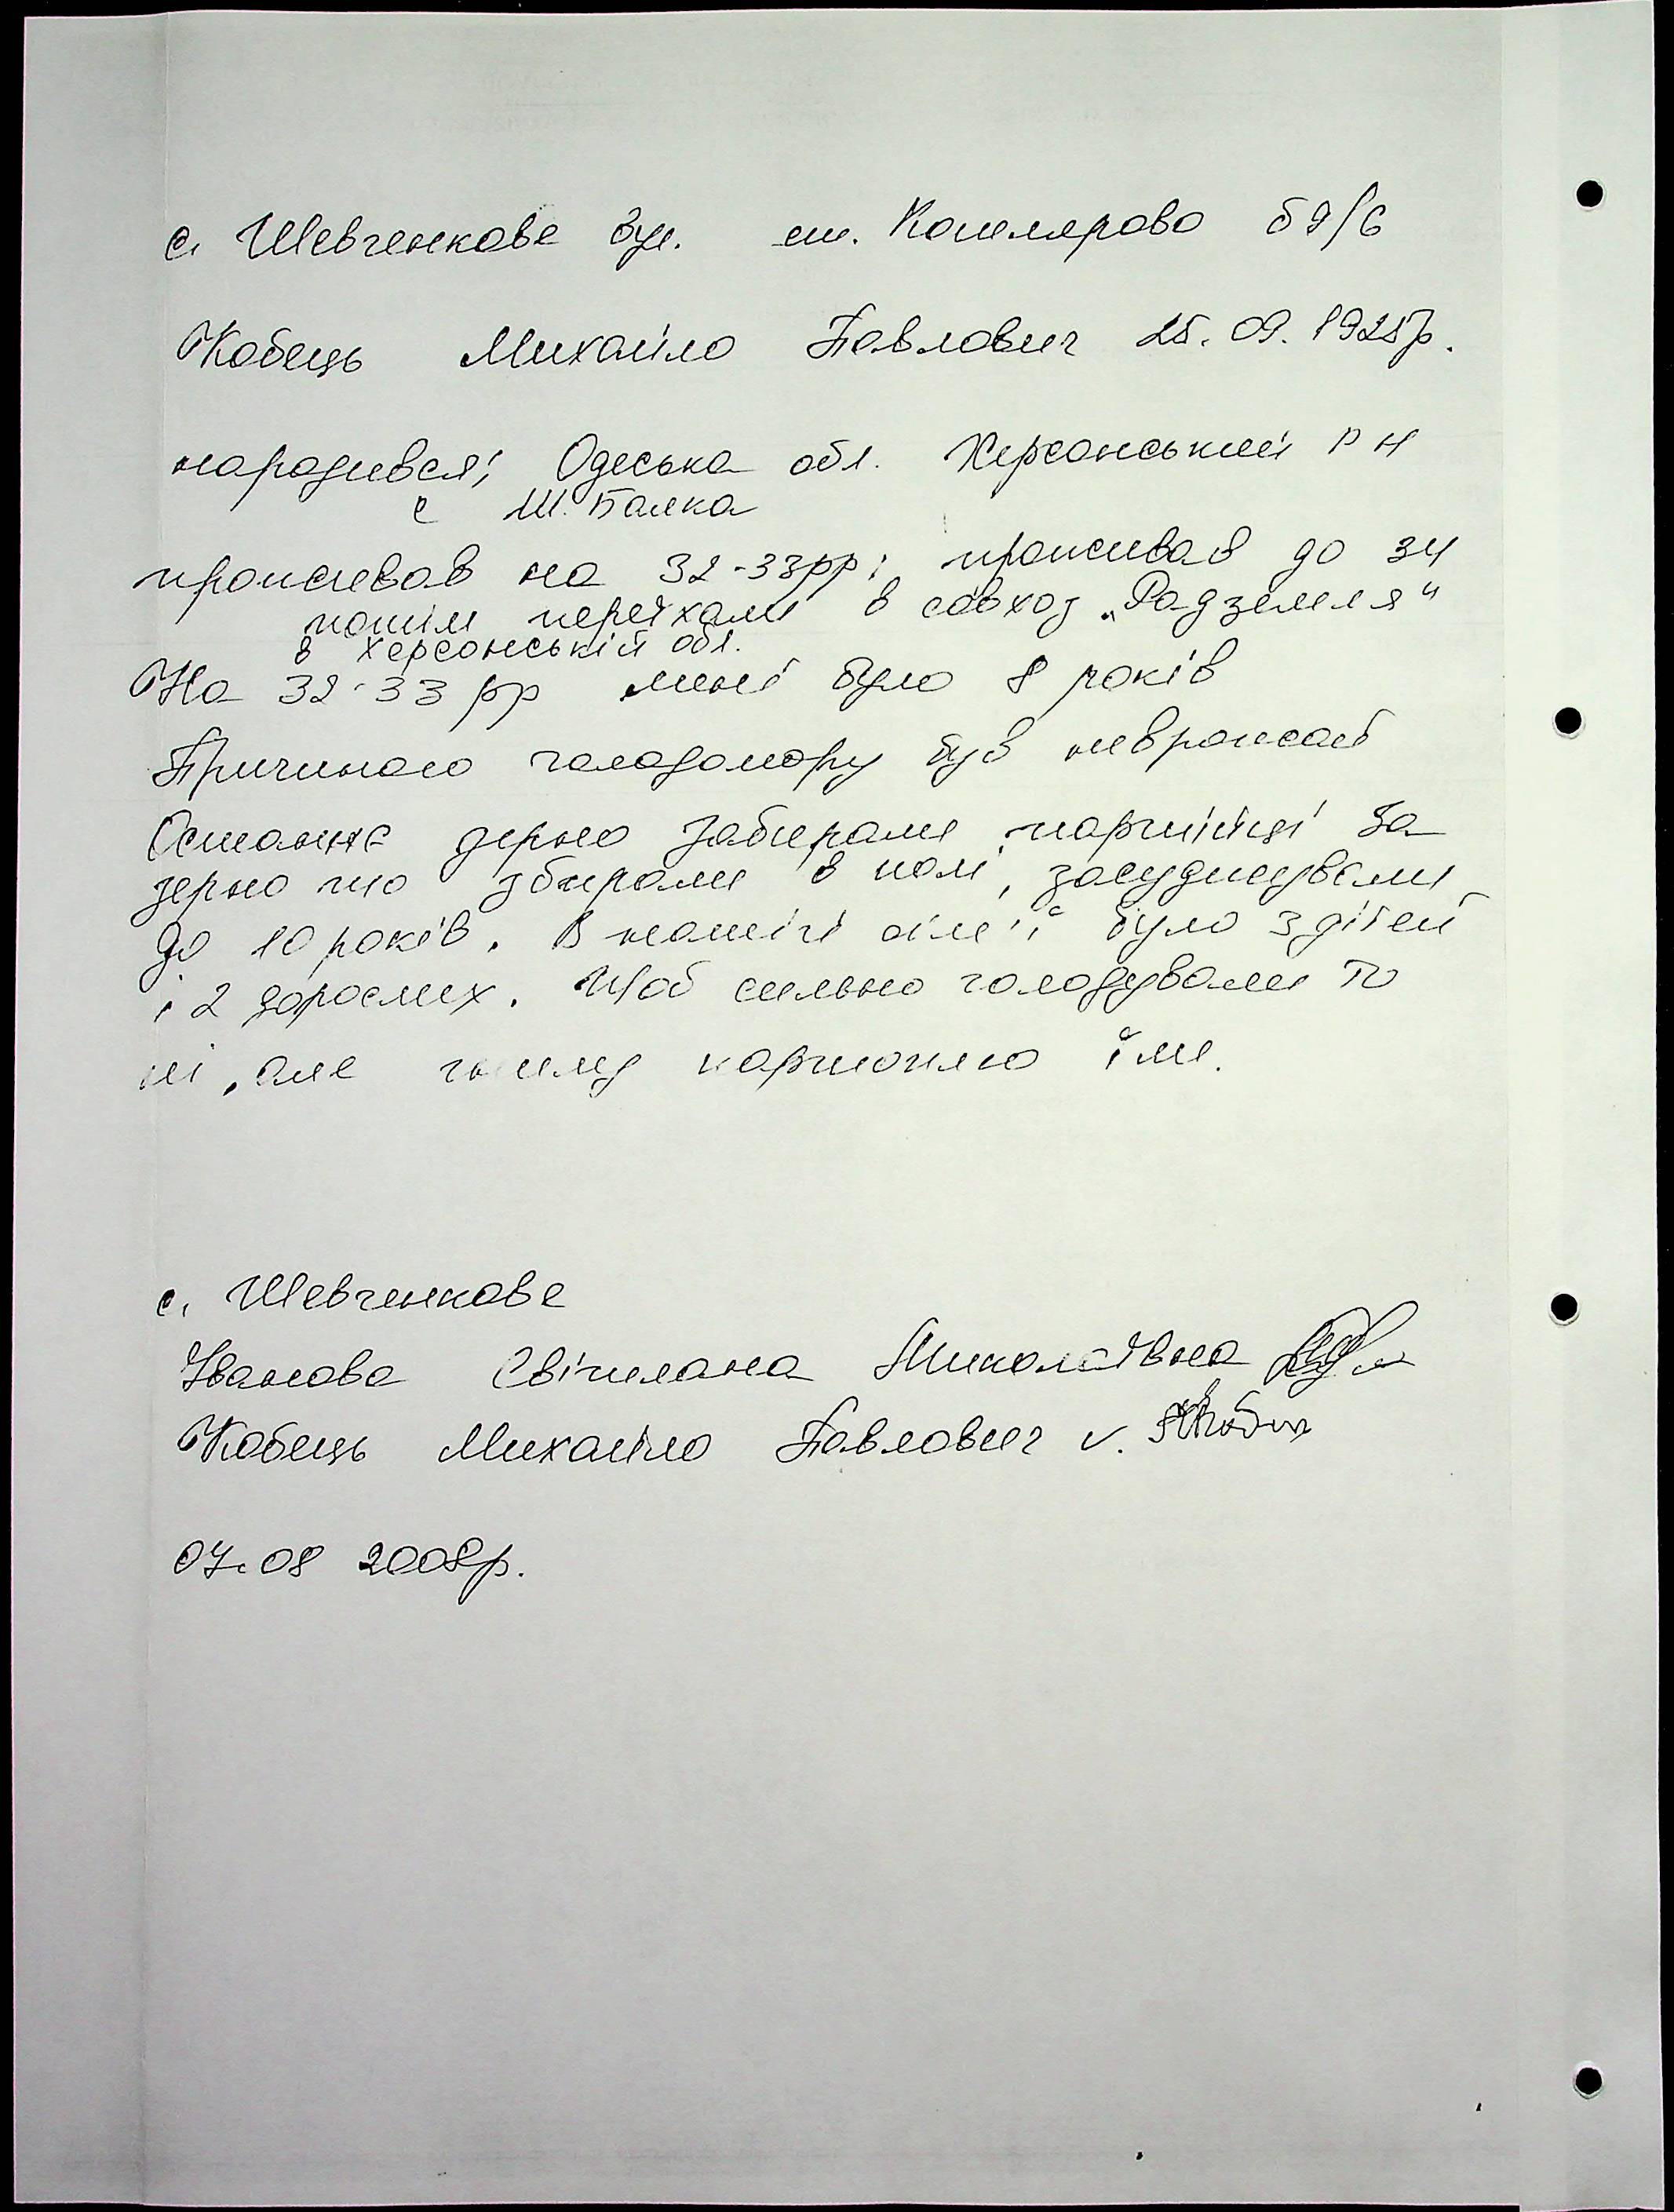 с. Шевченкове вул. ст. Котлярово 59/6
Кобець Михайло Павлович 25.09.1925р.
народився; Одеська обл. Херсонський р н
с Ш. Балка
проживав на 32-33рр; проживав до 34
потім переїхали в совхоз „Радземля"
в Херсонській обл.
На 32-33 рр мені було 8 років
Причиною голодомору був неврожай
Останнє зерно забирали партійці За
зерно що збирали в полі, засуджували
до 10 років. В нашій сім'ї було 3 дітей
і 2 дорослих. Щоб сильно голодували то
ні, але гнилу картоплю їли.
с. Шевченкове
Іванова Світлана Миколаївна
Кобець Михайло Павлович v.
07.08 2008р.